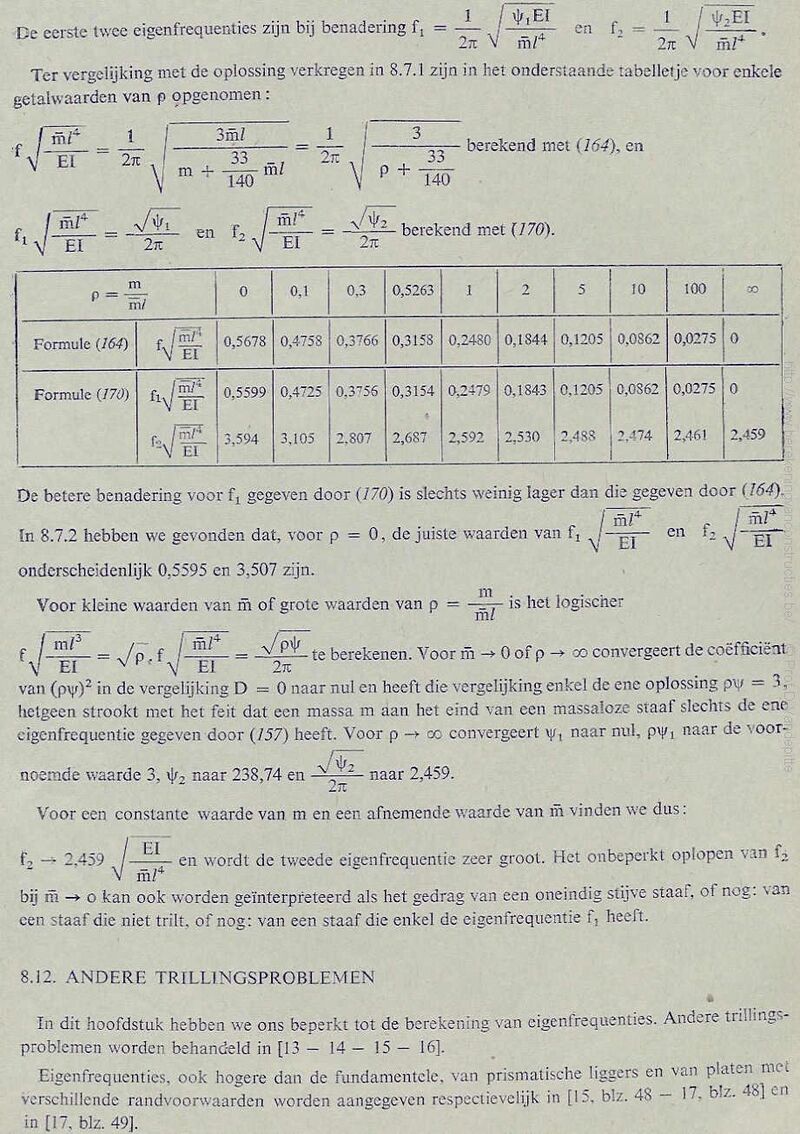 De eerste twee eigenfrequenties zijn bij benadering f₁ = 1/2π √(ψ₁EI / m̄l⁴) en f₂ = 1/2π √(ψ₂EI / m̄l⁴).
Ter vergelijking met de oplossing verkregen in 8.7.1 zijn in het onderstaande tabelletje voor enkele
getalwaarden van ρ opgenomen:
f √(m̄l⁴ / EI) = 1/2π √(3m̄l / (m + 33/140 m̄l)) = 1/2π √(3 / (ρ + 33/140)) berekend met (164), en
f₁ √(m̄l⁴ / EI) = √ψ₁ / 2π en f₂ √(m̄l⁴ / EI) = √ψ₂ / 2π berekend met (170).
ρ = m / m̄l 0 0,1 0,3 0,5263 1 2 5 10 100 ∞
Formule (164) f√(m̄l⁴ / EI) 0,5678 0,4758 0,3766 0,3158 0,2480 0,1844 0,1205 0,0862 0,0275 0
Formule (170) f₁√(m̄l⁴ / EI) 0,5599 0,4725 0,3756 0,3154 0,2479 0,1843 0,1205 0,0862 0,0275 0
f₂√(m̄l⁴ / EI) 3,594 3,105 2,807 2,687 2,592 2,530 2,488 2,474 2,461 2,459
De betere benadering voor f₁ gegeven door (170) is slechts weinig lager dan die gegeven door (164).
In 8.7.2 hebben we gevonden dat, voor ρ = 0, de juiste waarden van f₁ √(m̄l⁴ / EI) en f₂ √(m̄l⁴ / EI)
onderscheidenlijk 0,5595 en 3,507 zijn.
Voor kleine waarden van m̄ of grote waarden van ρ = m / m̄l is het logischer
f √(ml³ / EI) = √ρ . f √(m̄l⁴ / EI) = √ρψ / 2π te berekenen. Voor m̄ → 0 of ρ → ∞ convergeert de coëfficiënt
van (ρψ)² in de vergelijking D = 0 naar nul en heeft die vergelijking enkel de ene oplossing ρψ = 3,
hetgeen strookt met het feit dat een massa m aan het eind van een massaloze staaf slechts de ene
eigenfrequentie gegeven door (157) heeft. Voor ρ → ∞ convergeert ψ₁ naar nul, ρψ₁ naar de voor-
noemde waarde 3, ψ₂ naar 238,74 en √ψ₂ / 2π naar 2,459.
Voor een constante waarde van m en een afnemende waarde van m̄ vinden we dus:
f₂ → 2,459 √(EI / m̄l⁴) en wordt de tweede eigenfrequentie zeer groot. Het onbeperkt oplopen van f₂
bij m̄ → o kan ook worden geïnterpreteerd als het gedrag van een oneindig stijve staaf, of nog: van
een staaf die niet trilt, of nog: van een staaf die enkel de eigenfrequentie f₁ heeft.
8.12. ANDERE TRILLINGSPROBLEMEN
In dit hoofdstuk hebben we ons beperkt tot de berekening van eigenfrequenties. Andere trillings-
problemen worden behandeld in [13 – 14 – 15 – 16].
Eigenfrequenties, ook hogere dan de fundamentele, van prismatische liggers en van platen met
verschillende randvoorwaarden worden aangegeven respectievelijk in [15, blz. 48 – 17, blz. 48] en
in [17, blz. 49].